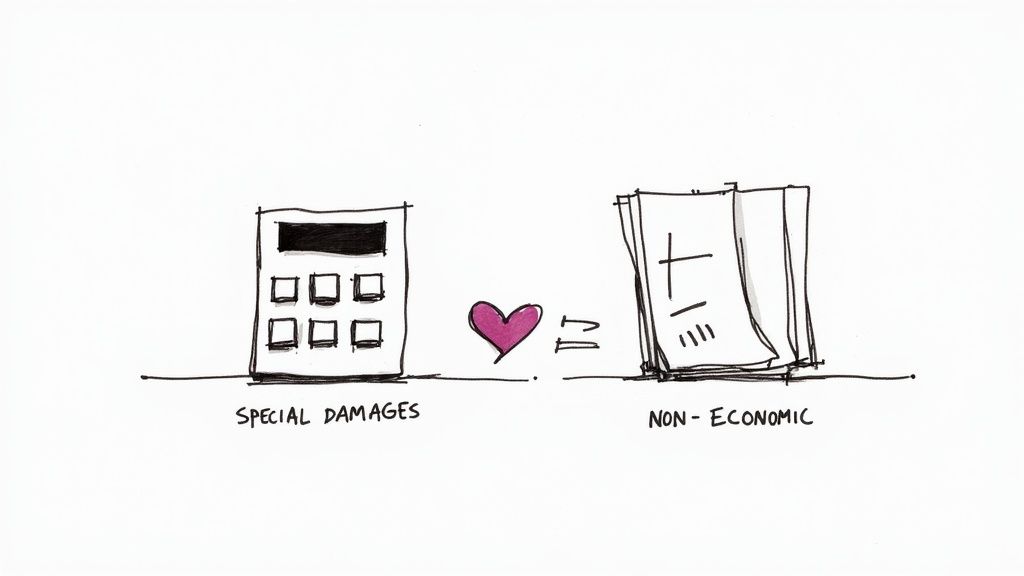 SPECIAL DAMAGES
NON-ECONOMIC